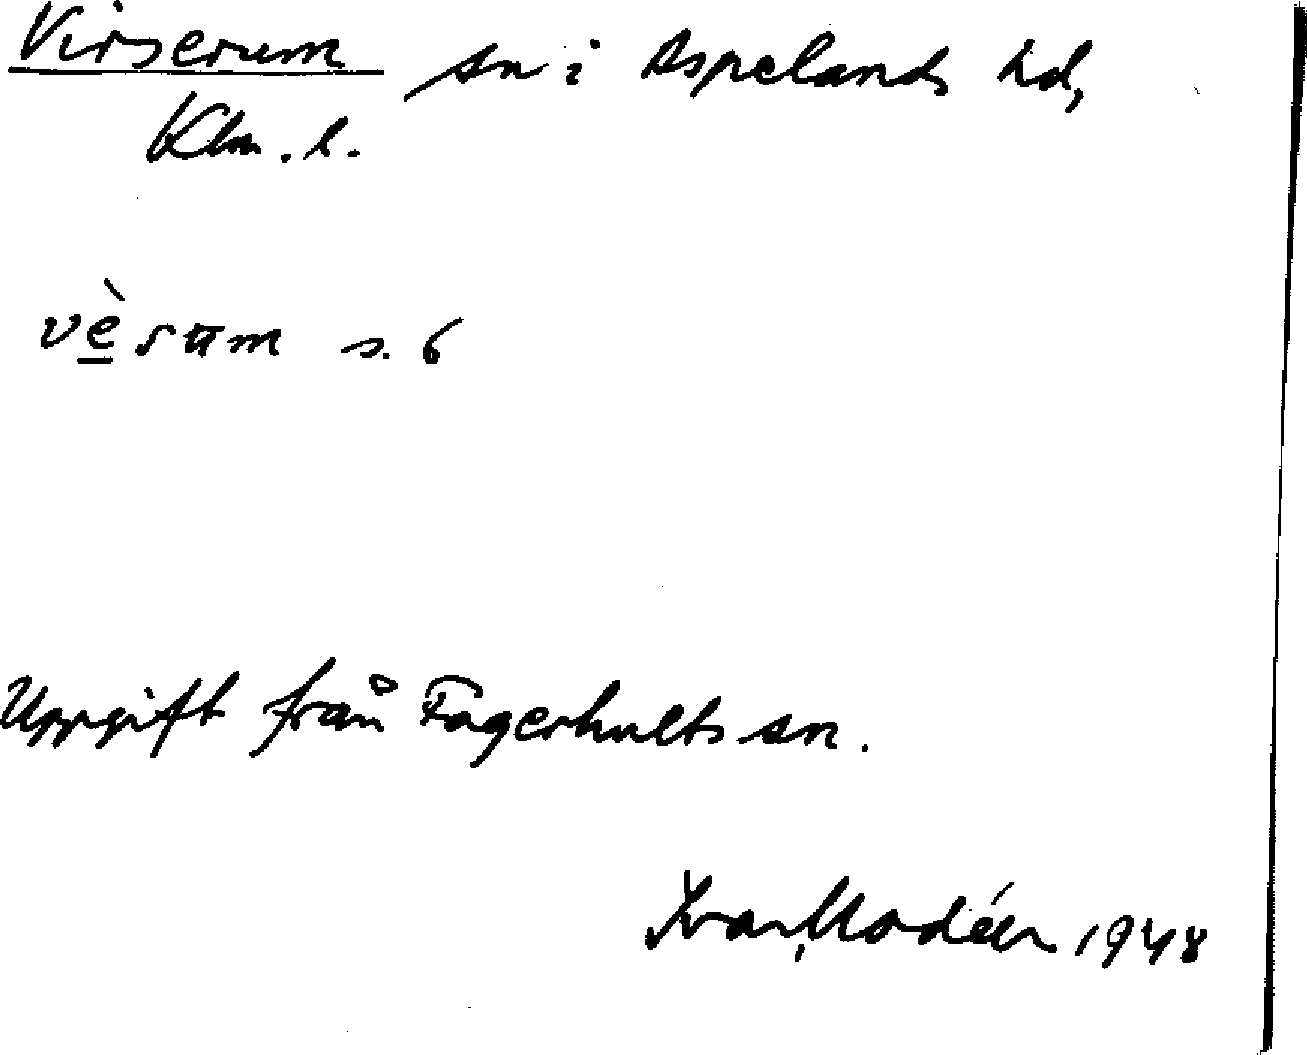 Virserum sn i Aspelands hd,
Klm. l.
vèsum s. 6
Uppgift från Fagerhults sn.
Ivar Modéer 1948